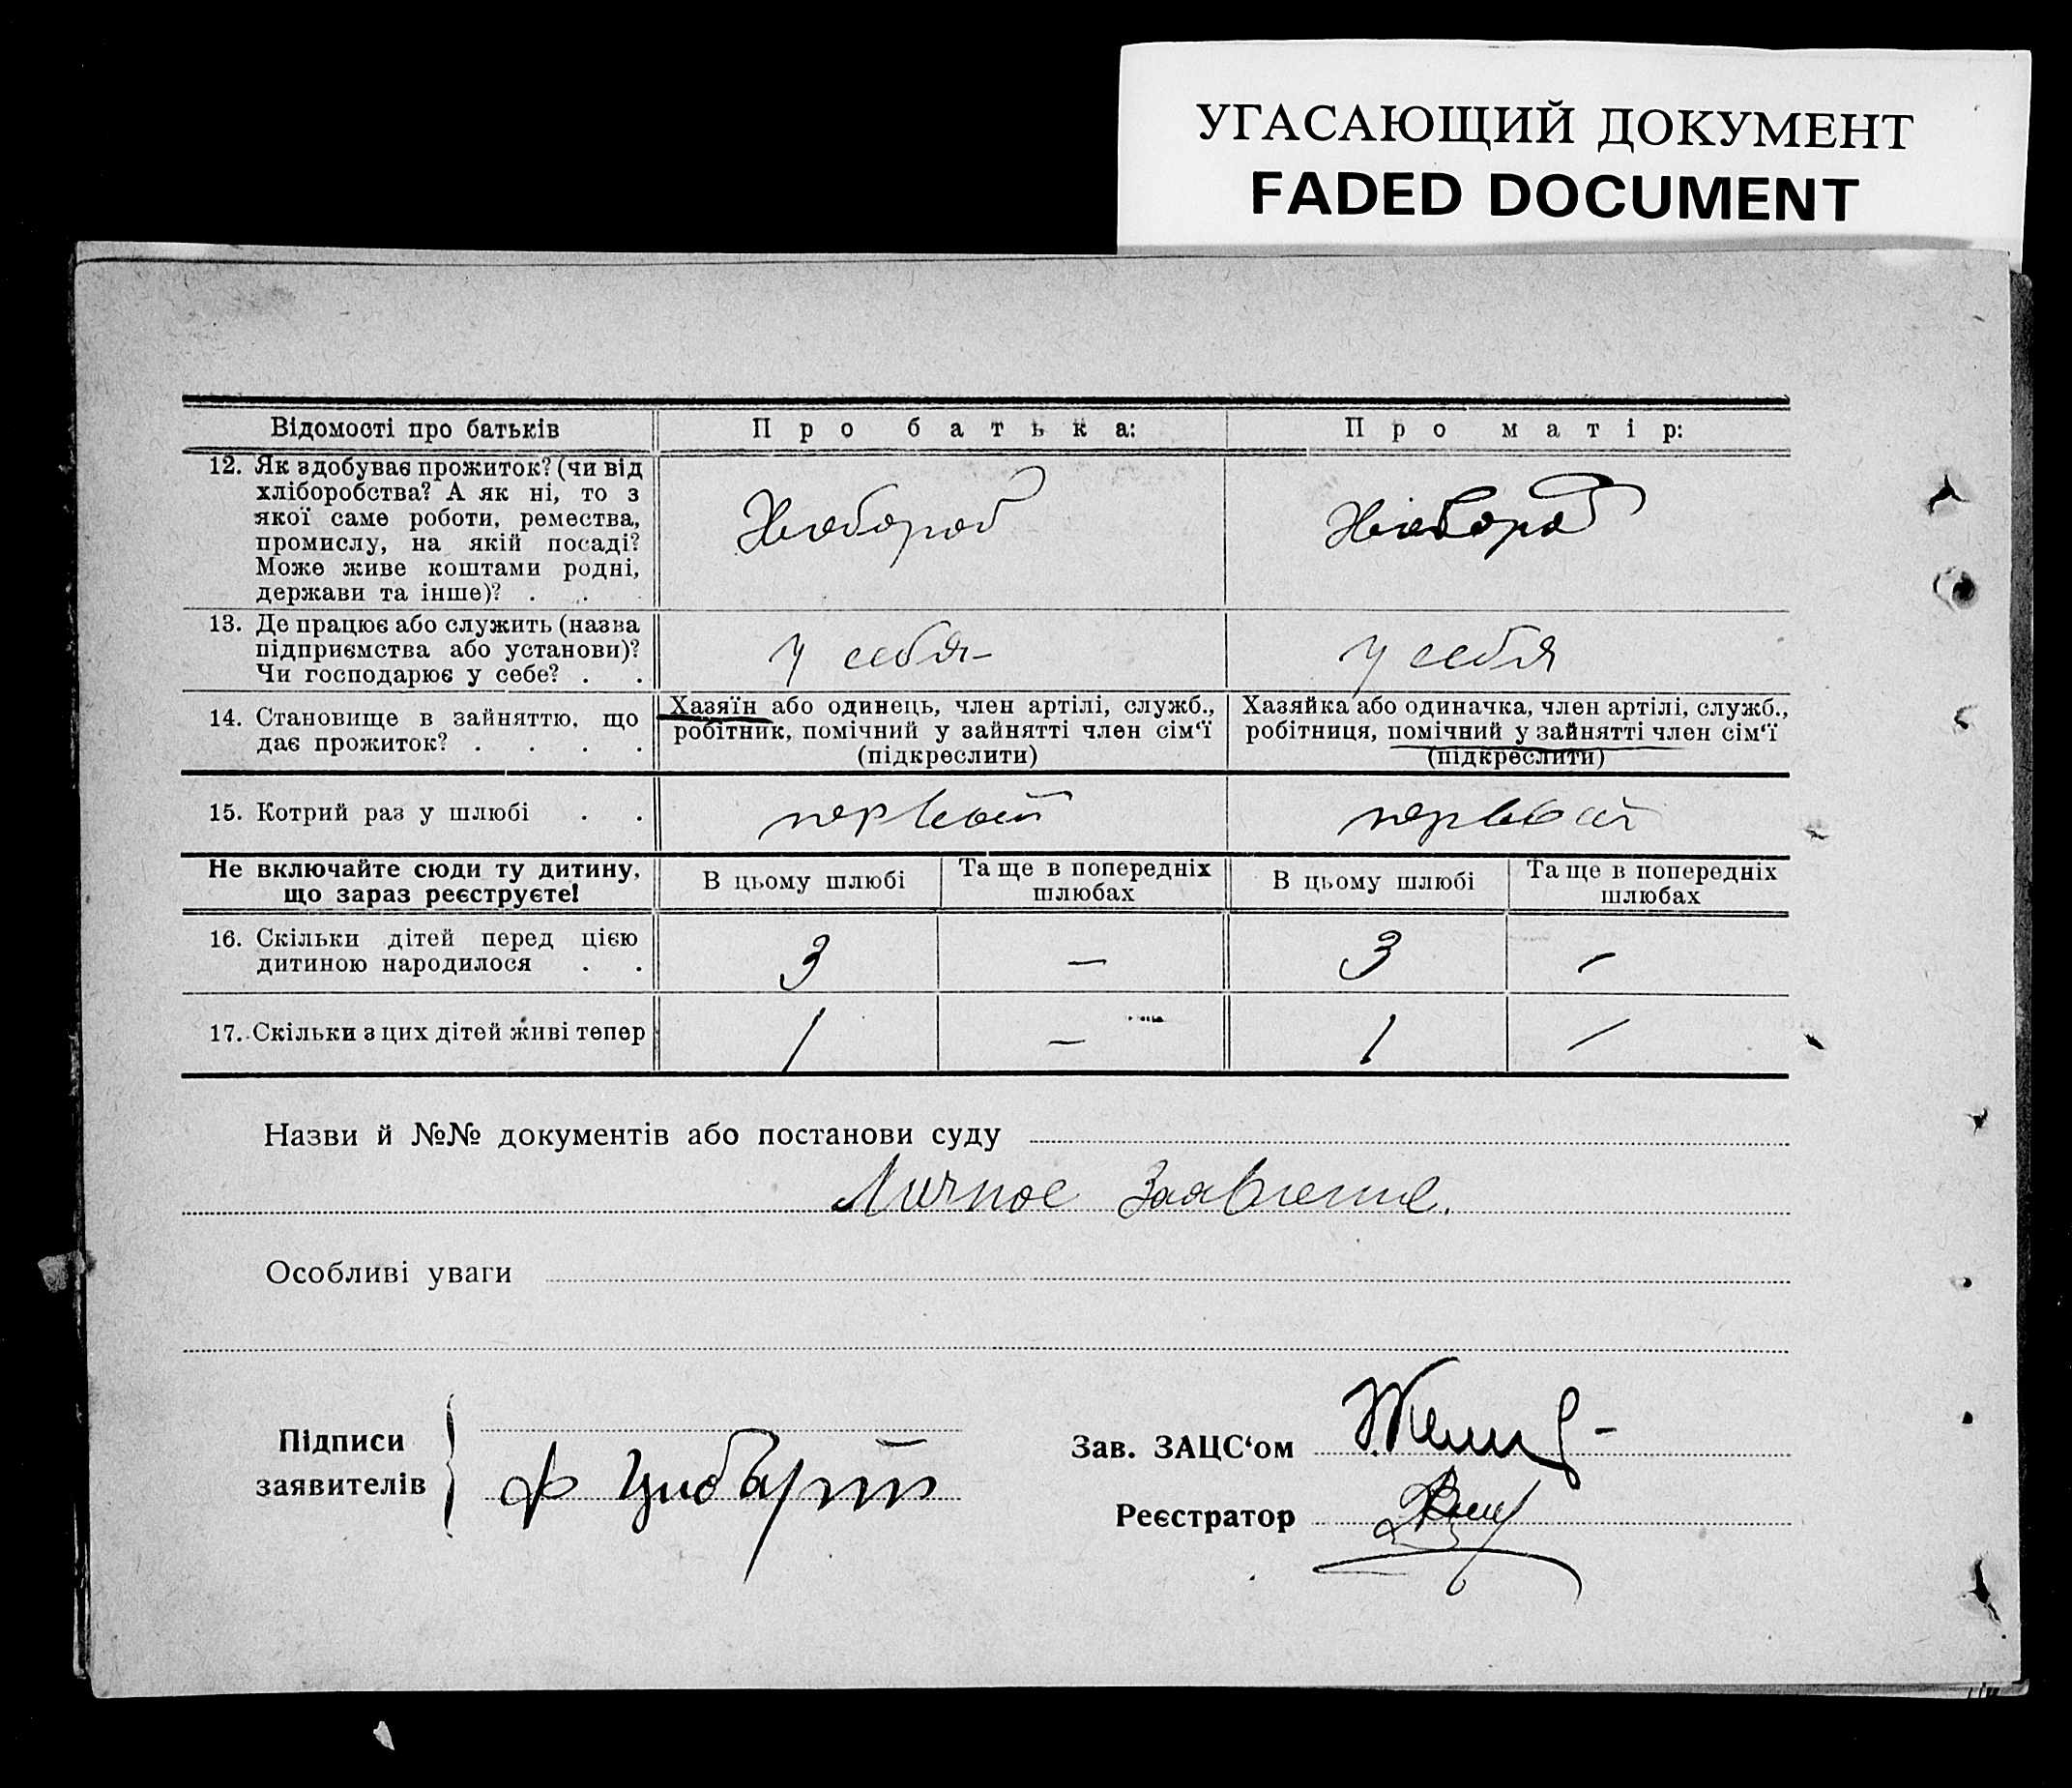 УГАСАЮЩИЙ ДОКУМЕНТ
FADED DOCUMENT
Відомості про батьків
Про батька:
Про матір:
12. Як здобуває прожиток? (чи від
хліборобства? А як ні, то з
якої саме роботи, ремества,
промислу, на якій посаді?
Може живе коштами родні,
держави та інше)? . .
Хлебороб
Хлебороб
13. Де працює або служить (назва
підприємства або установи)?
Чи господарює у себе? . .
У себя
У себя
14. Становище в зайняттю, що
дає прожиток? . . . .
Хазяїн або одинець, член артілі, служб.,
робітник, помічний у зайнятті член сім‘ї
(підкреслити)
Хазяйка або одиначка, член артілі, служб.,
робітниця, помічний у зайнятті член сім‘ї
(підкреслити)
15. Котрий раз у шлюбі . .
первый
первый
Не включайте сюди ту дитину,
що зараз реєструєте!
В цьому шлюбі
Та ще в попередніх
шлюбах
В цьому шлюбі
Та ще в попередніх
шлюбах
16. Скільки дітей перед цією
дитиною народилося . .
3 — 3 —
17. Скільки з цих дітей живі тепер
1 — 1 —
Назви й №№ документів або постанови суду
Личное Заявление.
Особливі уваги
Підписи
заявителів
Ф
Зав. ЗАЦС‘ом
Реєстратор